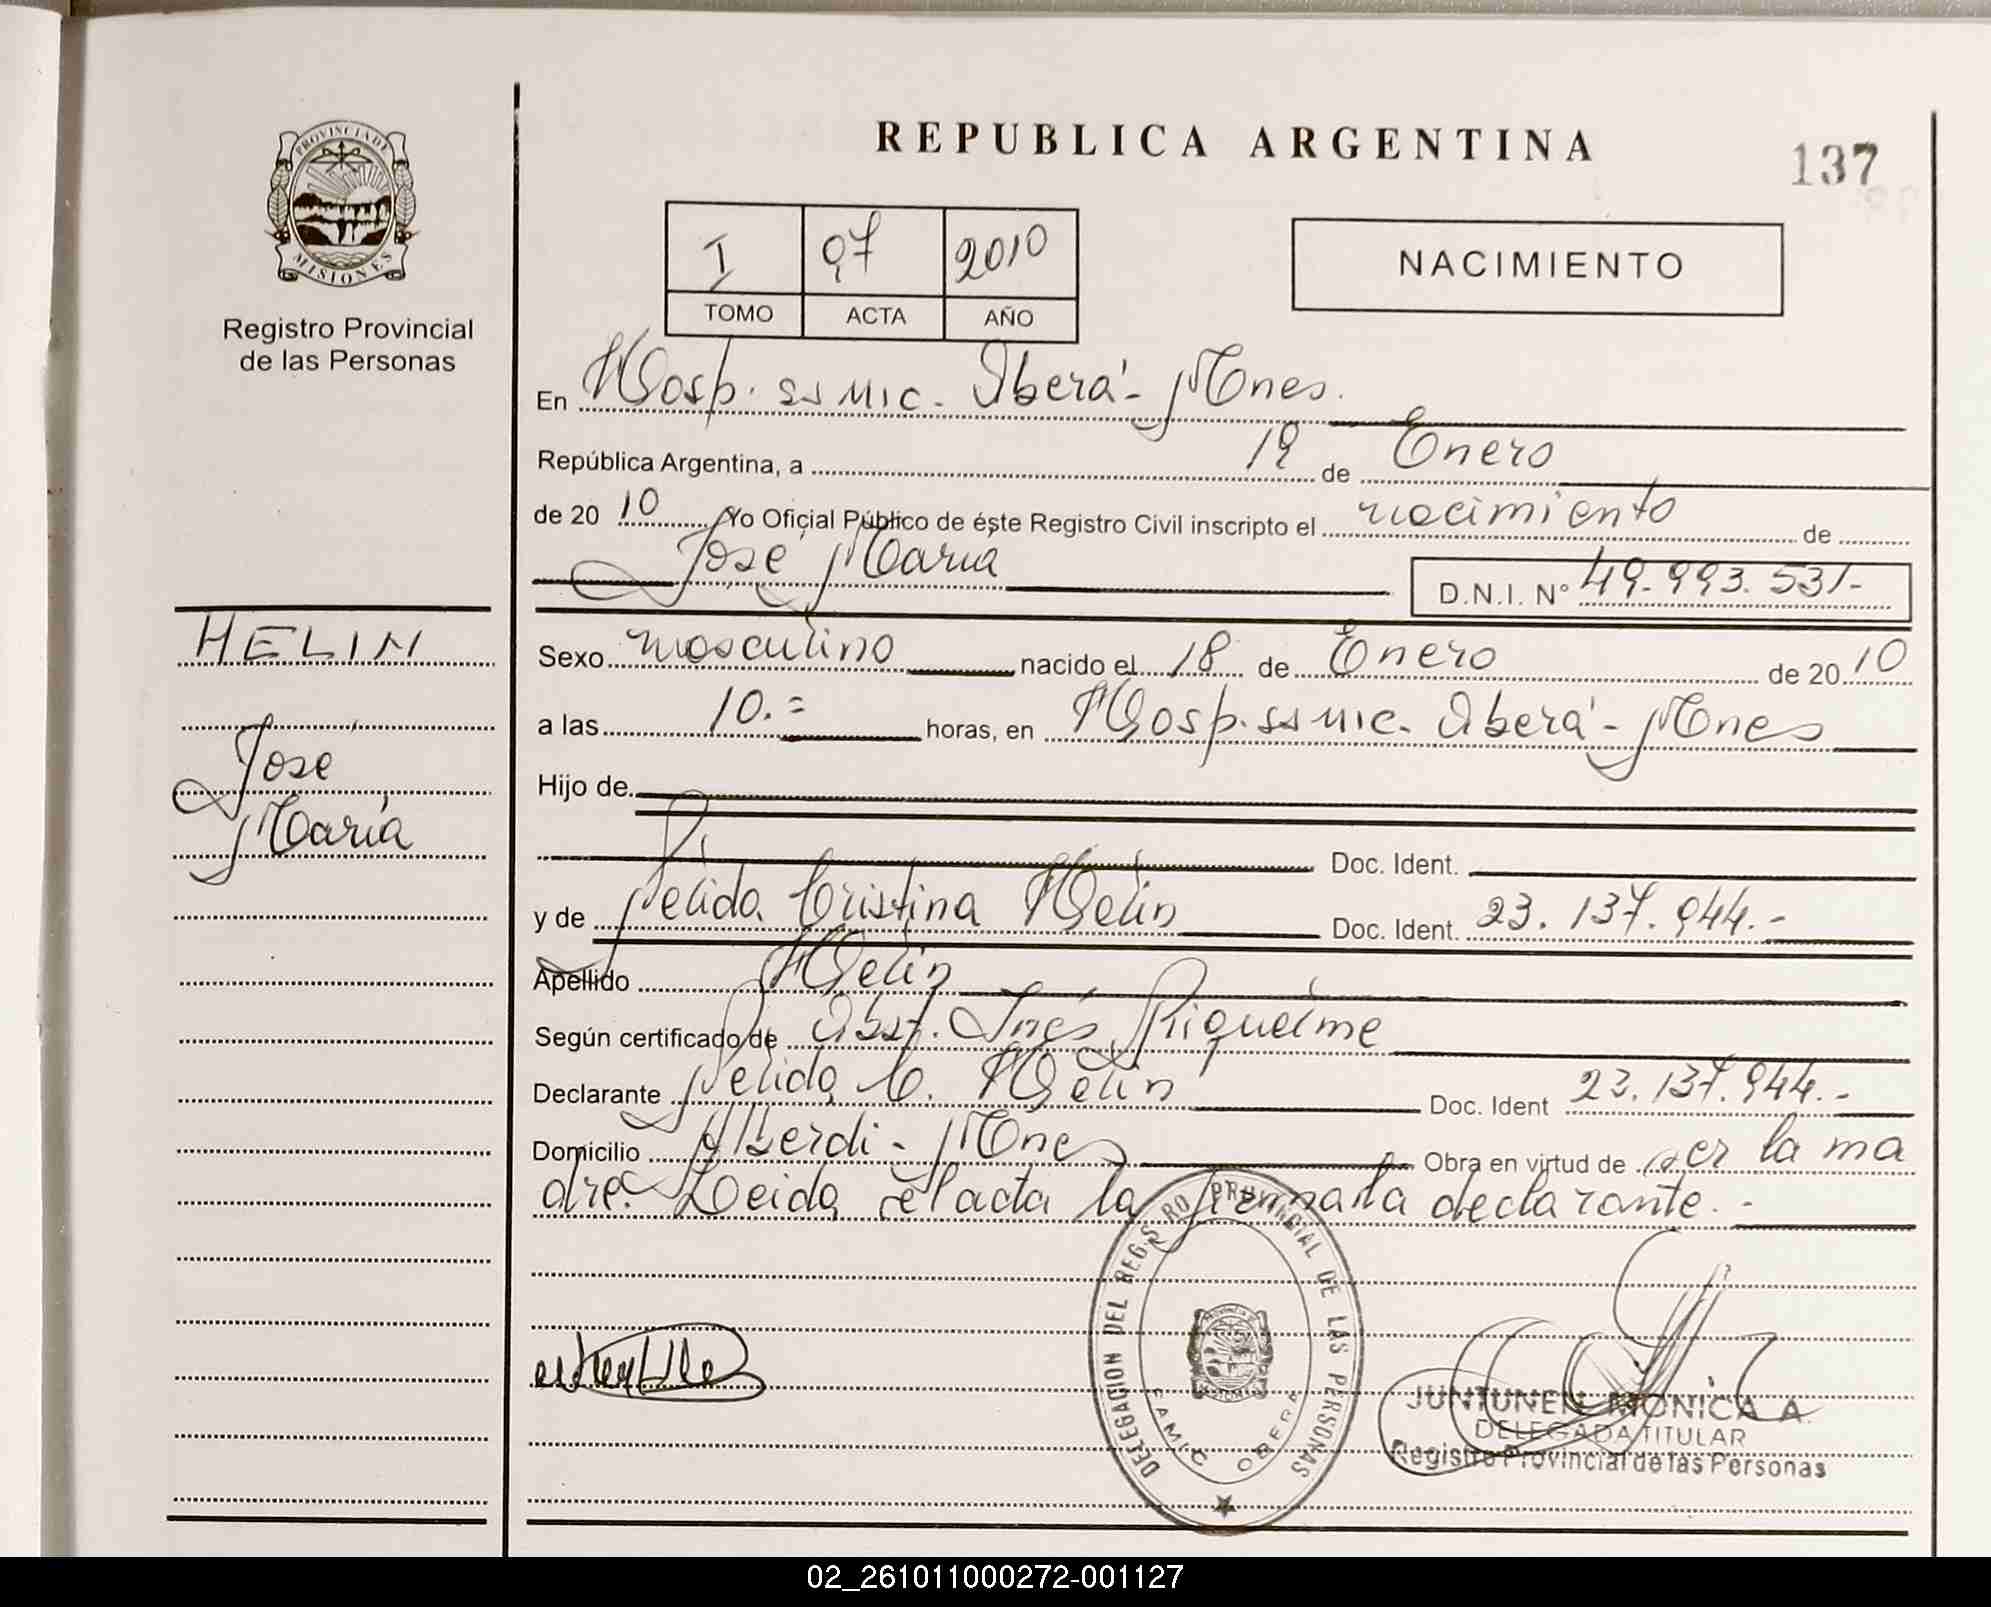 REPUBLICA ARGENTINA
137
PROVINCIA DE
MISIONES
Registro Provincial
de las Personas
I 97 2010
TOMO ACTA AÑO
NACIMIENTO
En Hosp. ss mic. Oberá - Mnes.
República Argentina, a 19 de Enero
de 20 10 Yo Oficial Público de éste Registro Civil inscripto el nacimiento de
José María D.N.I. N° 49.993.531-
HELIN
José
María
Sexo masculino nacido el 18 de Enero de 20 10
a las 10.= horas, en Hosp. ss mic. Oberá - Mnes
Hijo de
Doc. Ident.
y de Nélida Cristina Helin Doc. Ident. 23.137.944.-
Apellido Helin
Según certificado de Obst. Inés Riquelme
Declarante Nélida C. Helin Doc. Ident 23.137.944.-
Domicilio Alberdi - Mnes Obra en virtud de ser la ma
dre. Leida el acta la firma la declarante.-
DELEGACION DEL REGISTRO PROVINCIAL DE LAS PERSONAS
SAMIC OBERA
JUNTUNEN MONICA A.
DELEGADA TITULAR
Registro Provincial de las Personas
02_261011000272-001127